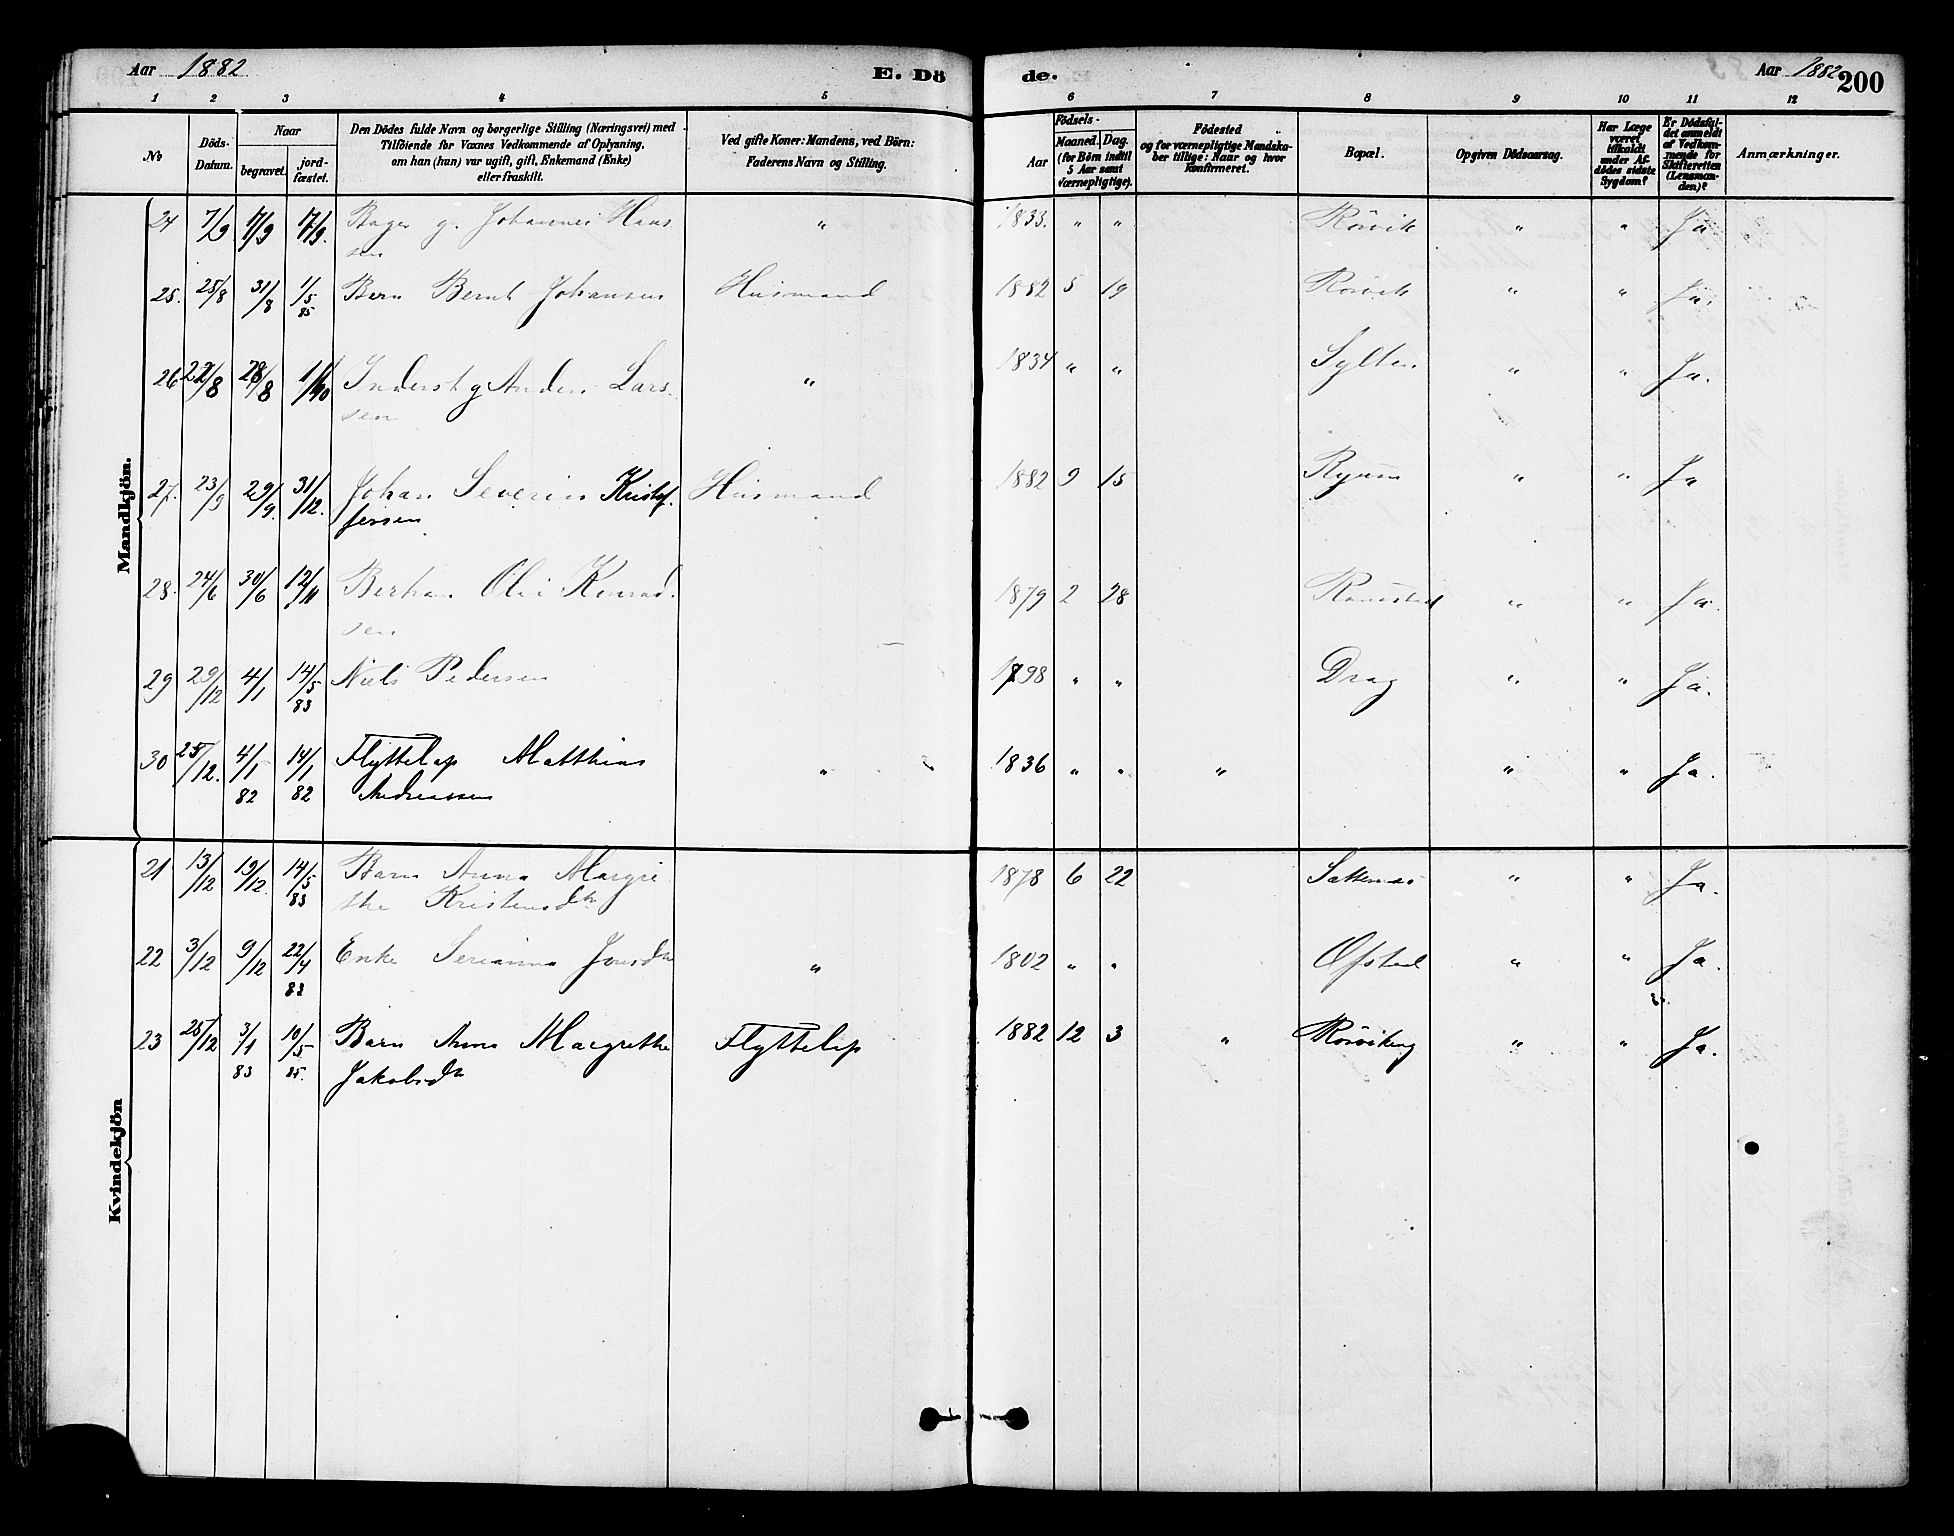 Aar 1882
E. Dö
de.
Aar 1882
200
1 2 3 4 5 6 7 8 9 10 11 12
No
Döds-
Datum.
Naar
begravet.
jord-
fæstet.
Den Dödes fulde Navn og borgerlige Stilling (Næringsvei) med
Tilföiende for Voxnes Vedkommende af Oplysning,
om han (hun) var ugift, gift, Enkemand (Enke)
eller fraskilt.
Ved gifte Koner: Mandens, ved Börn:
Faderens Navn og Stilling.
Födsels-
Aar
Maaned.
Dag.
(for Börn indtil
5 Aar samt
Værnepligtige).
Födested
og for værnepligtige Mandska-
ber tillige: Naar og hvor
Konfirmeret.
Bopæl.
Opgiven Dödsaarsag.
Har Læge
været
tilkaldt
under Af-
dödes sidste
Sygdom?
Er Dödsfal-
det anmeldt
af Vedkom-
mende for
Skifteretten
(Lensman-
den)?
Anmærkninger.
Mandkjön.
24 7/9 17/9 17/9 g. Johannes Hans " 1833. " " Rörvik " " Ja
sen
25. 25/8 31/8 1/5 85 Barn Bernt Johansen Husmand 1882 5 19 Rörvik " " Ja.
26 22/8 28/8 Inderst g Anders Lars- " 1834 " " Sylten " " Ja.
sen
27. 23/9 29/9. 31/12. Johan Severin Kristof- Husmand 1882 9 15 " " Ja
fersen
28. 24/6 30/6 12/11 Olai Konrad- 1879 2 28 " " Ja.
sen
29 29/12 4/1 14/5 83 Niels Pedersen 1798 " " Drag " " Ja.
30 25/12. 4/1 82 14/1 82 Flyttelap Matthias " 1836 " " " " " Ja.
Andreassen
Kvindekjön
21 13/12 19/12. 14/5 83 Barn Anna Margre 1878 6 22 " " Ja.
the Kristensdtr
22 3/12 9/12 22/4 83 Enke Serianna Jonsdtr " 1802 " " Ofstad " " Ja.
23 28/12 3/1 83 10/5 85. Barn Anna Margrethe Flyttelap 1882 12 3 " Rörviking " " Ja.
Jakobsdtr